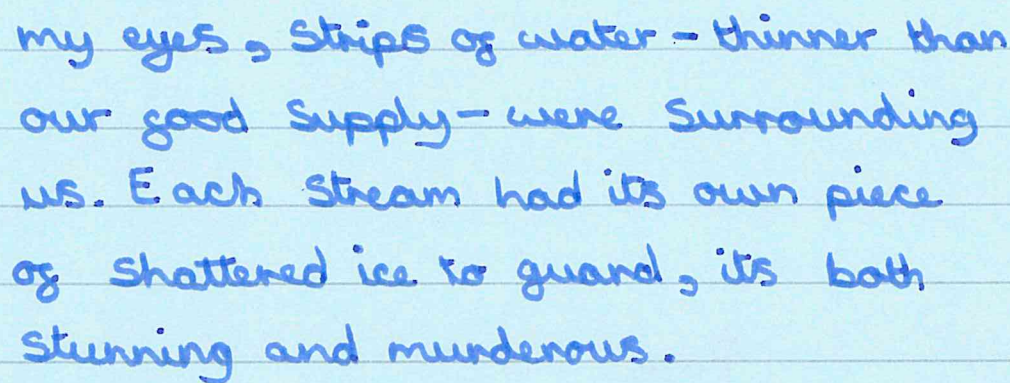 my eyes, strips of water - thinner than
our good supply - were surrounding
us. Each stream had its own piece
of shattered ice to guard, its both
stunning and murderous.